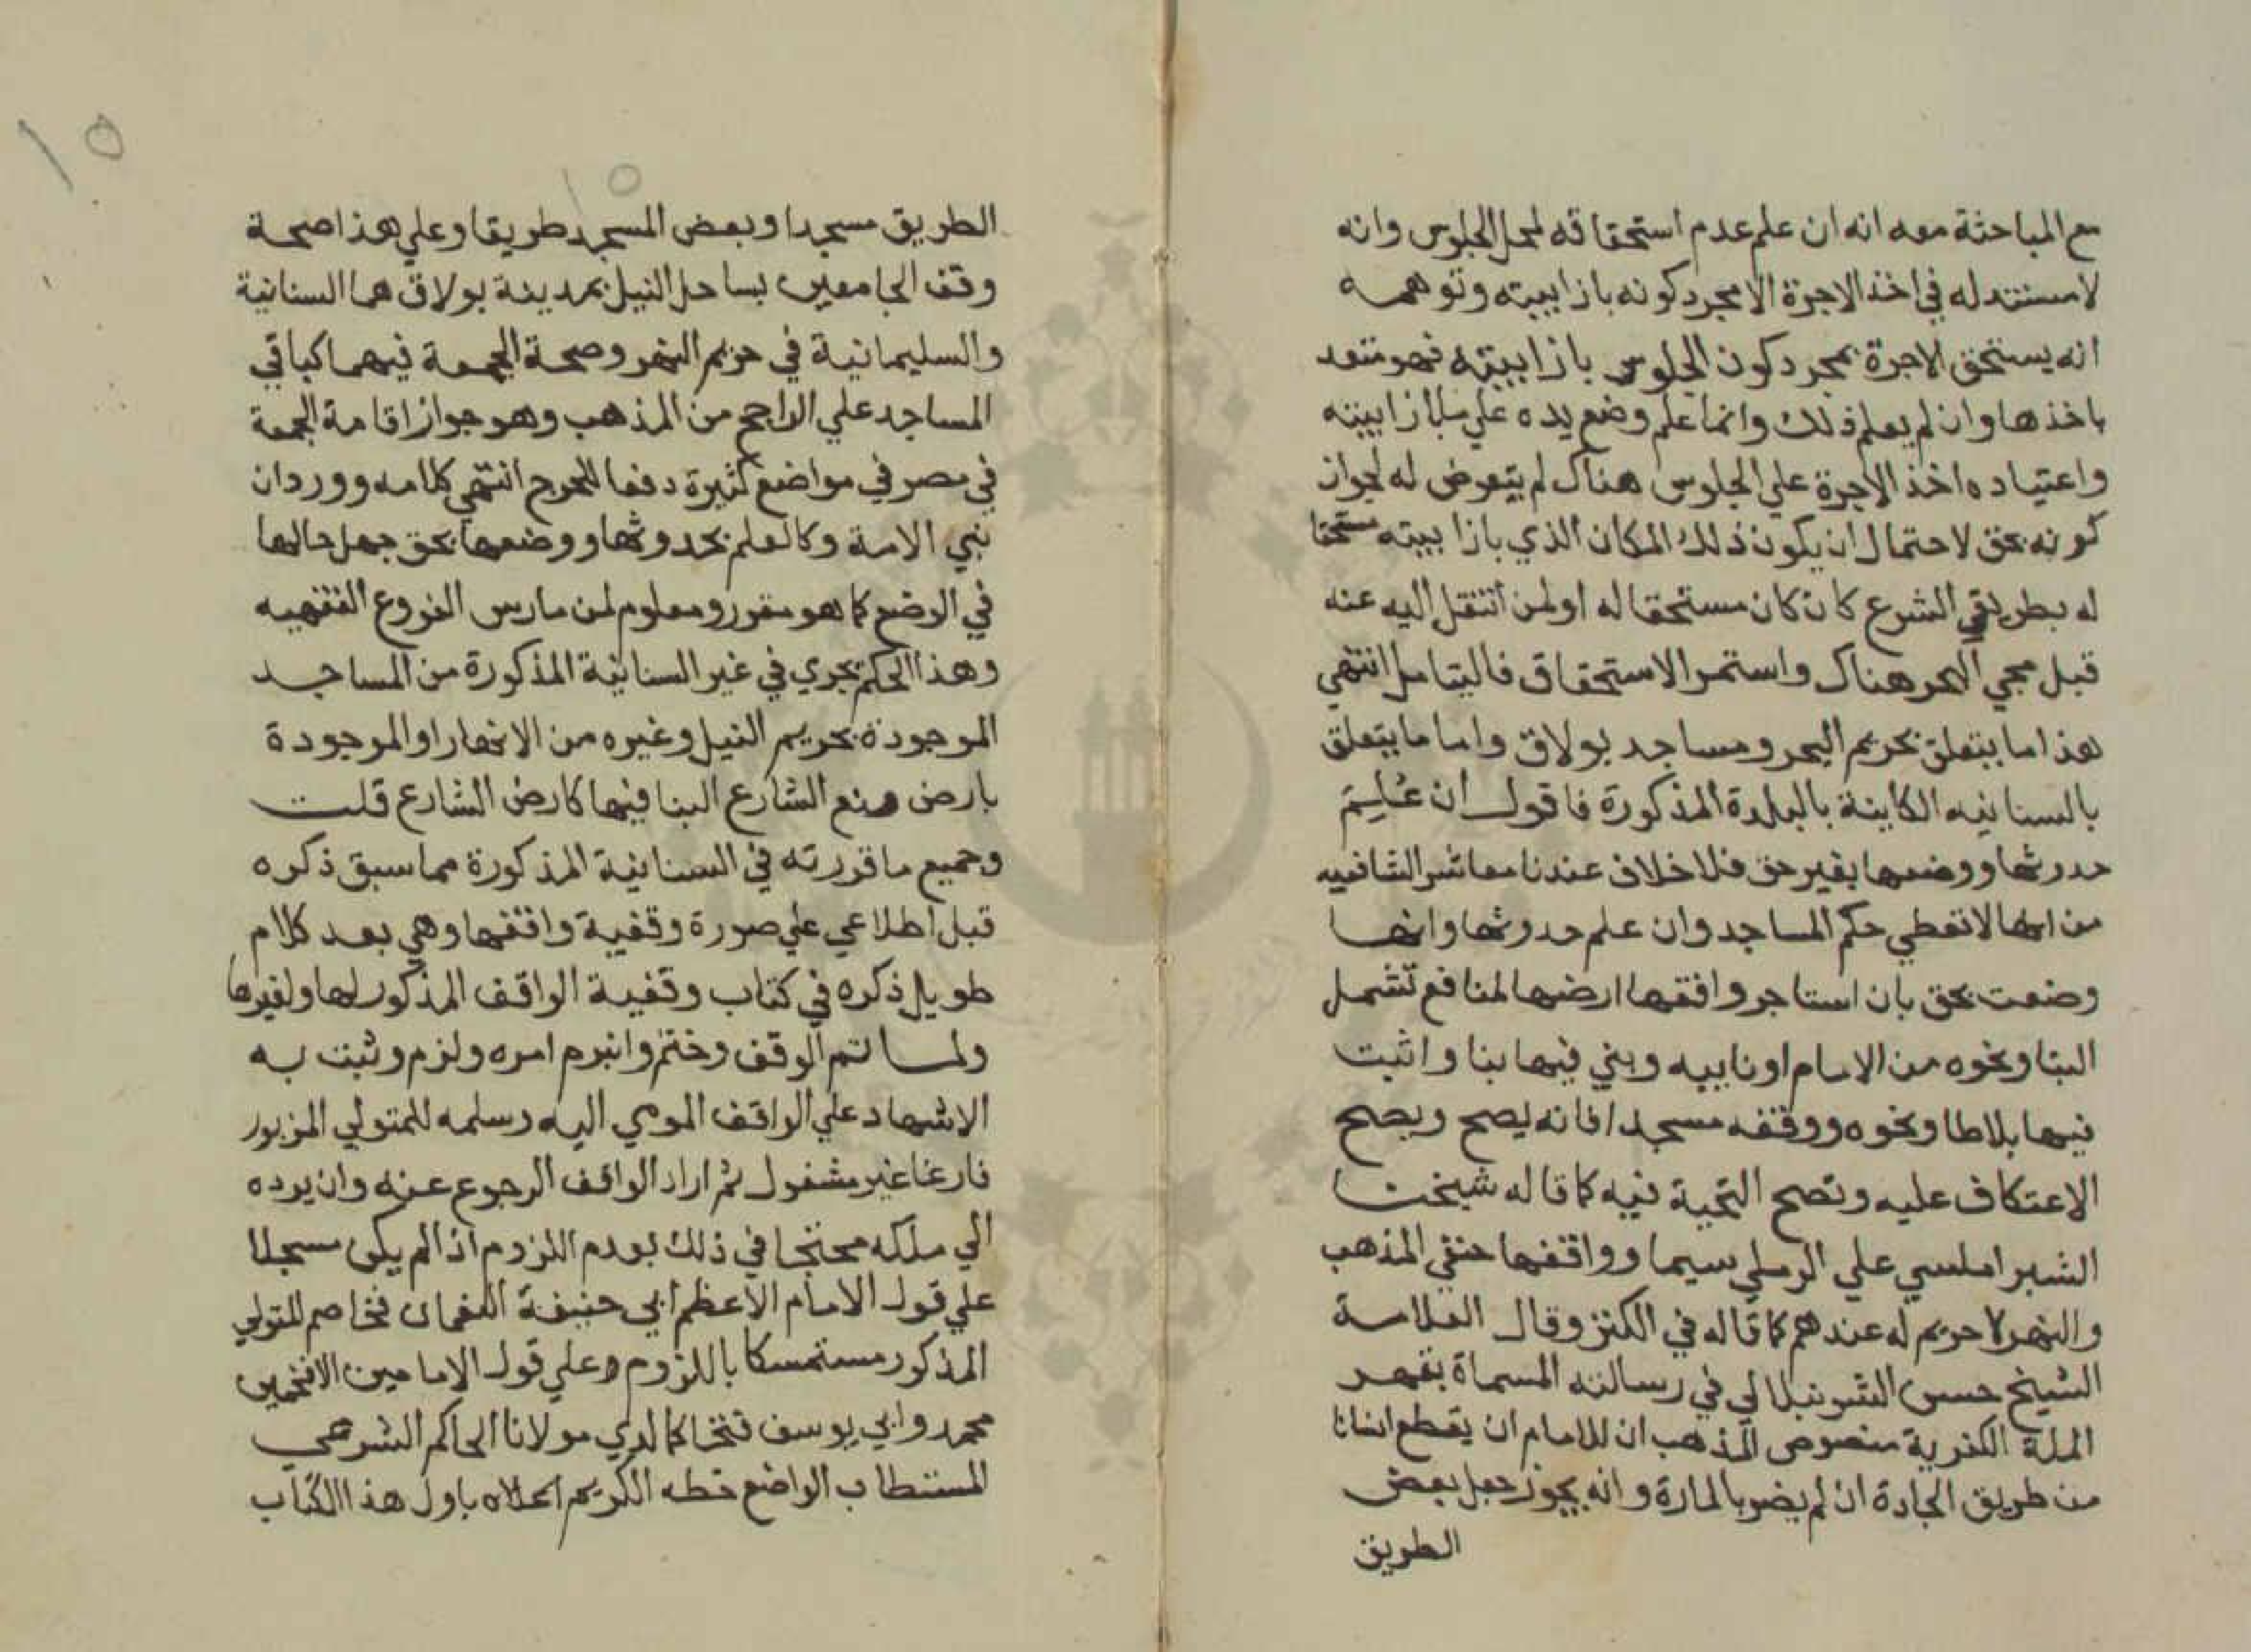 مع المباحثة معه انه ان علم عدم استحقاقه لمحل الجلوس وانه
لا مستند له في اخذ الاجرة الا مجرد كونه بازا بيته وتوهمه
انه يستحق الاجرة بمجرد كون الجلوس بازا بيته فهو متعد
باخذها وان لم يعلم ذلك وانما علم وضع يده علي ما بازا بيته
واعتياده اخذ الاجرة علي الجلوس هناك لم يتعرض له لجواز
كونه بحق لاحتمال ان يكون ذلك المكان الذي بازا بيته مستحقا
له بطريق الشرع كان كان مستحقا له او لمن انتقل اليه عنه
قبل مجي البحر هناك واستمر الاستحقاق فاليتامل انتهي
هذا ما يتعلق بحريم البحر ومساجد بولاق واما ما يتعلق
بالسنانيه الكاينة بالبلدة المذكورة فاقول ان علم
حدوثها ووضعها بغير حق فلا خلاف عندنا معاشر الشافعيه
من انها لا تعطي حكم المساجد وان علم حدوثها وانها
وضعت بحق بان استاجر واقفها ارضها لمنافع تشمل
البنا ونحوه من الامام او نايبه وبني فيها بنا واثبت
فيها بلاطا ونحوه ووقفه مسجدا فانه يصح ويصح
الاعتكاف عليه وتصح التحية فيه كما قاله شيخنا
الشبراملسي علي الرملي سيما وواقفها حنفي المذهب
والنهر لا حريم له عندهم كما قاله في الكنز وقال العلامة
الشيخ حسن الشرنبلالي في رسالته المسماة بقهر
الملة الكفرية منصوص المذهب ان للامام ان يقطع انسانا
من طريق الجادة ان لم يضر بالمارة وانه يجوز جعل بعض
الطريق
١٥
١٥
الطريق مسجدا وبعض المسجد طريقا وعلي هذا صحة
وقف الجامعين بساحل النيل بمدينة بولاق هما السنانية
والسليمانية في حريم النهر وصحة الجمعة فيهما كباقي
المساجد علي الراجح من المذهب وهو جواز اقامة الجمعة
في مصر في مواضع كثيرة دفعا للحرج انتهي كلامه ووردان
نبي الامة وكالعلم بحدوثها ووضعها بحق جهل حالها
في الوضع كما هو مقرر ومعلوم لمن مارس الفروع الفقهيه
وهذا الحكم يجري في غير السنانية المذكورة من المساجد
الموجودة بحريم النيل وغيره من الانهار او الموجودة
بارض منع الشارع البنا فيها كارض الشارع قلت
وجميع ما قررته في السنانية المذكورة مما سبق ذكره
قبل اطلاعي علي صورة وقفية واقفها وهي بعد كلام
طويل ذكره في كتاب وقفية الواقف المذكور لها ولغيرها
ولما تم الوقف وختم وانبرم امره ولزم وثبت به
الاشهاد علي الواقف المومي اليه وسلمه للمتولي المزبور
فارغا غير مشغول ثم اراد الواقف الرجوع عنه وان يرده
الي ملكه محتجا في ذلك بعدم اللزوم اذا لم يكن مسجلا
علي قول الامام الاعظم ابي حنيفة النعمان فخاصم المتولي
المذكور مستمسكا باللزوم وعلي قول الامامين الافخمين
محمد وابي يوسف فتخاكما لدي مولانا الحاكم الشرعي
المستطاب الواضع خطه الكريم اعلاه باول هذا الكتاب